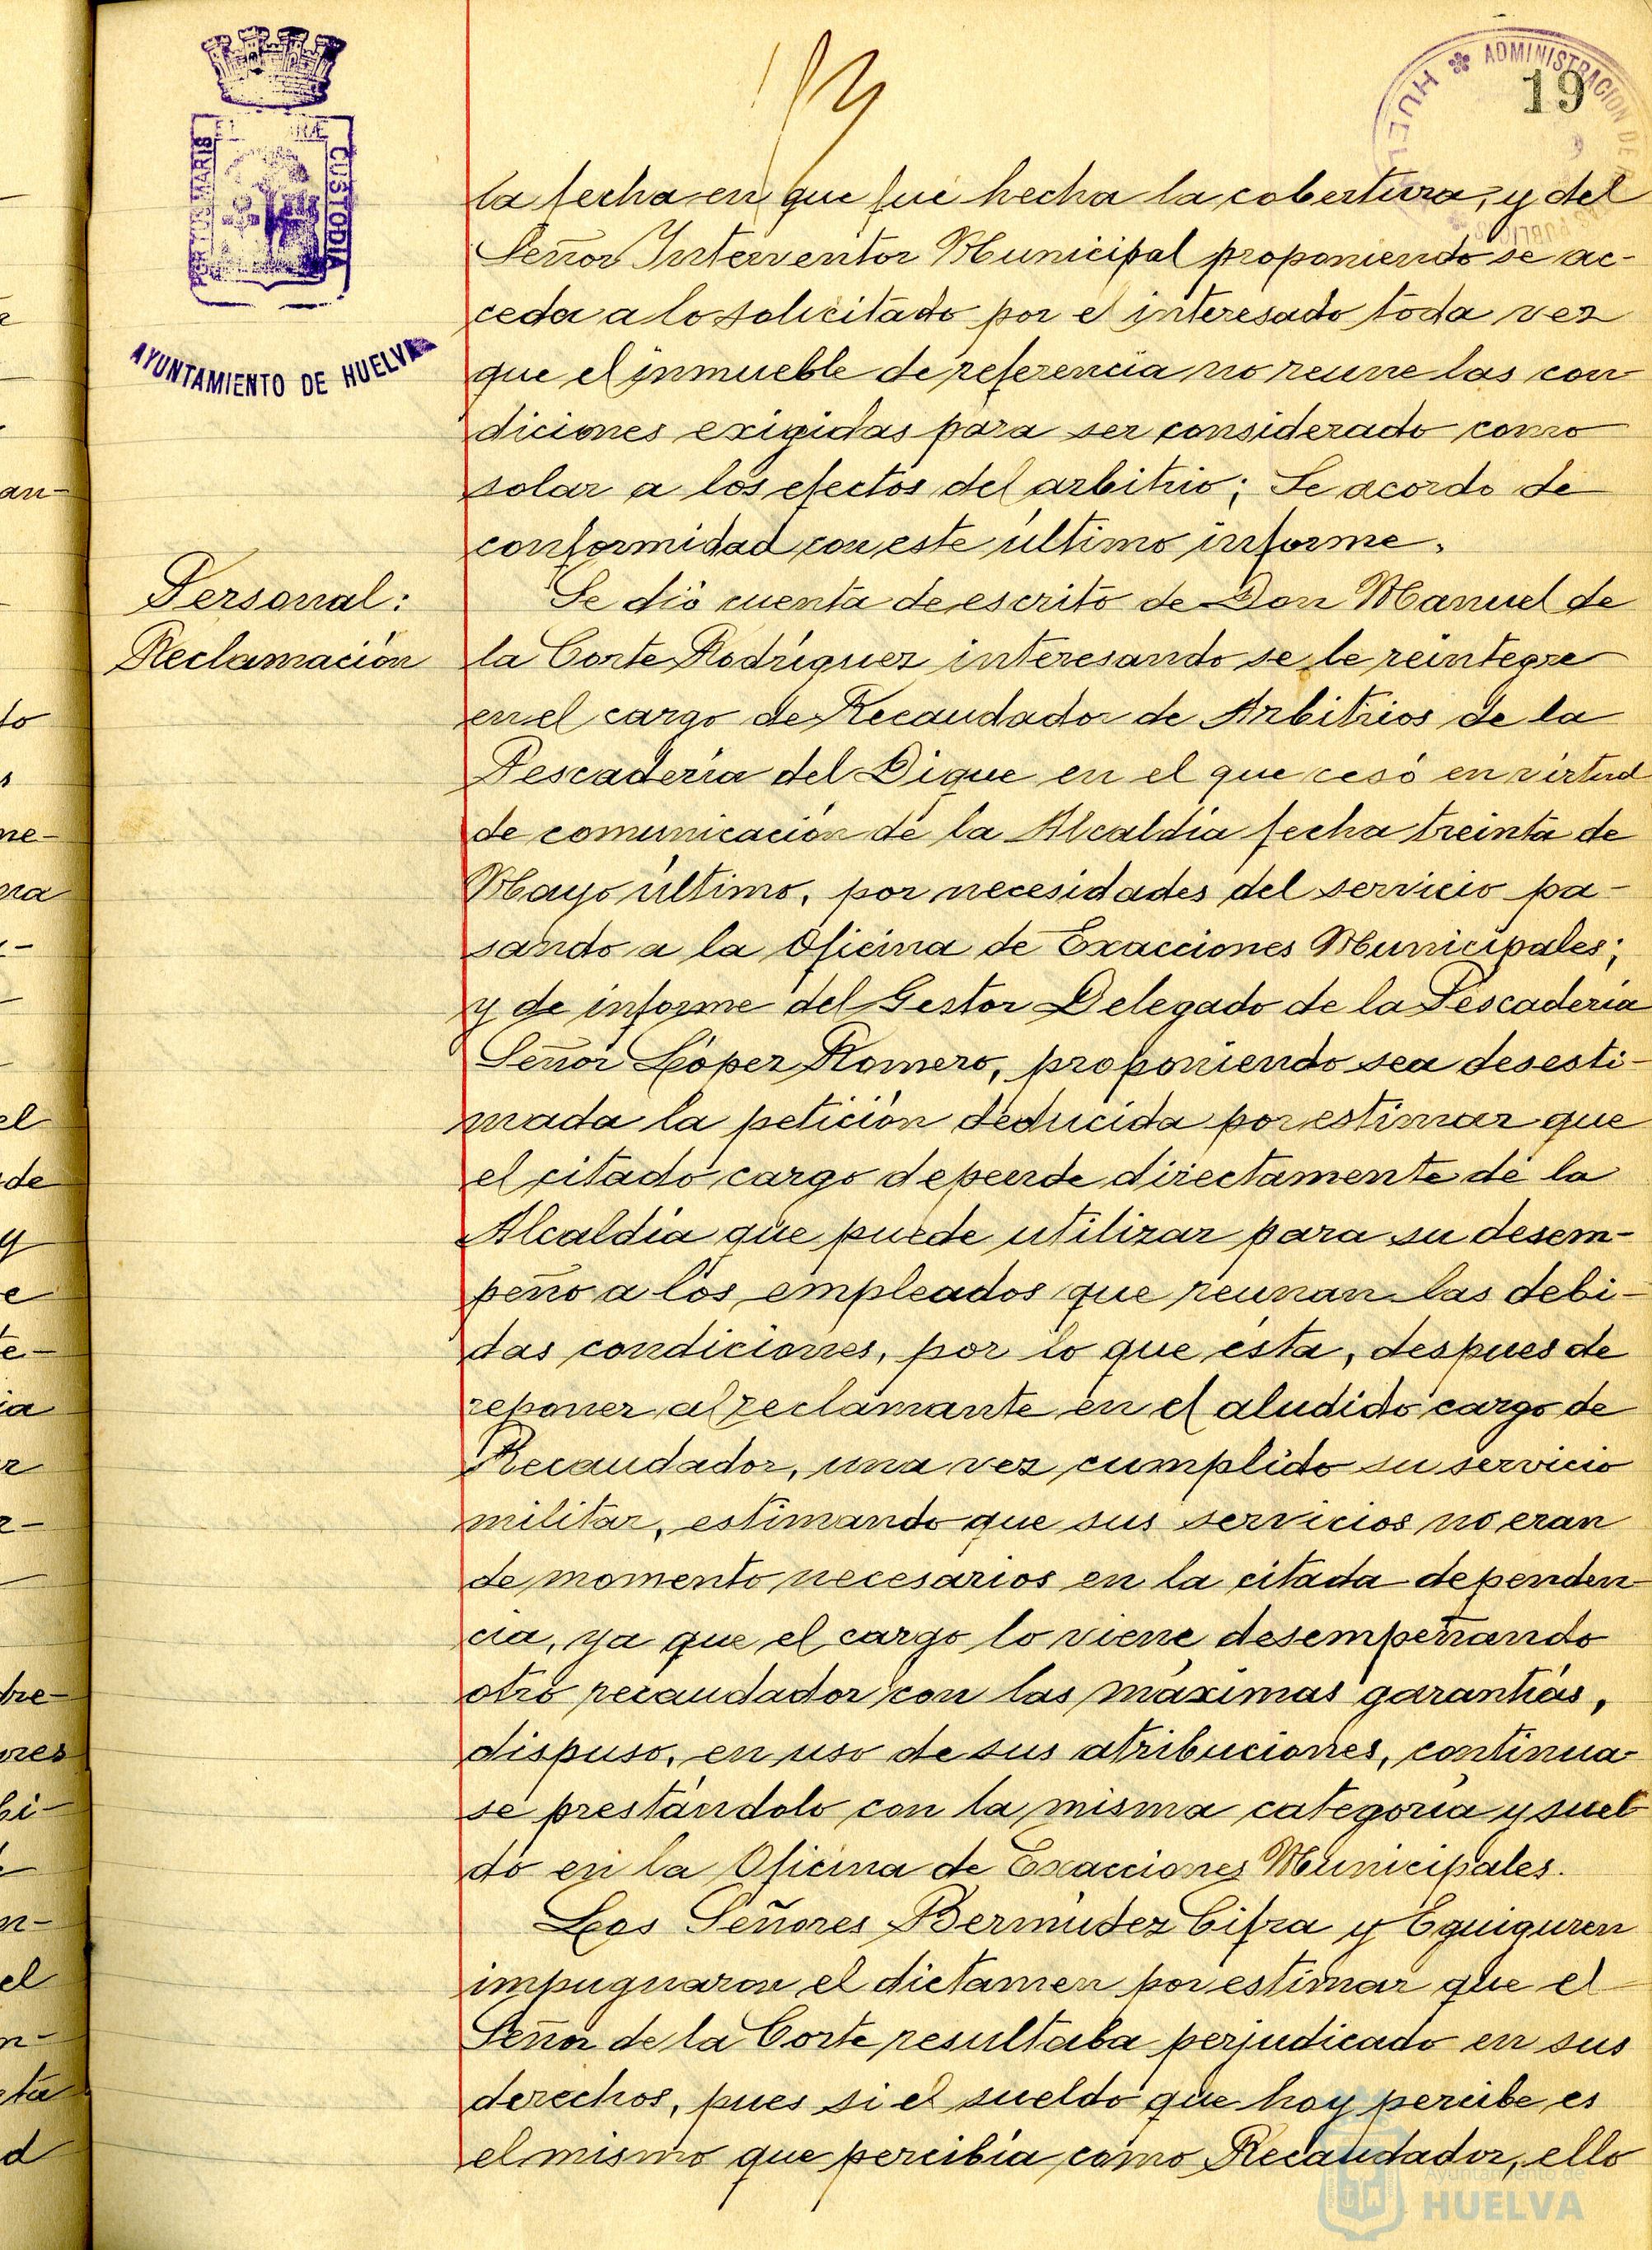 19
HUELVA ADMINISTRACION DE
PORTUS MARIS
CUSTODIA
AYUNTAMIENTO DE HUELVA
la fecha en que fué hecha la cobertura, y del
Señor Interventor Municipal proponiendo se ac-
ceda a lo solicitado por el interesado toda vez
que el inmueble de referencia no reune las con
diciones exigidas para ser considerado como
solar a los efectos del arbitrio; Se acordo de
conformidad con este último informe.
Personal:
Reclamación
Se dió cuenta de escrito de Don Manuel de
la Corte Rodriguez interesando se le reintegre
en el cargo de Recaudador de Arbitrios de la
Pescaderia del Dique en el que cesó en virtud
de comunicación de la Alcaldia fecha treinta de
Mayo último, por necesidades del servicio pa-
sando a la Oficina de Exacciones Municipales;
y de informe del Gestor Delegado de la Pescaderia
Señor López Romero, proponiendo sea desesti-
mada la petición deducida por estimar que
el citado cargo depende directamente de la
Alcaldia que puede utilizar para su desem-
peño a los empleados que reunan las debi-
das condiciones, por lo que ésta, despues de
reponer al reclamante en el aludido cargo de
Recaudador, una vez cumplido su servicio
militar, estimando que sus servicios no eran
de momento necesarios en la citada dependen
cia, ya que el cargo lo viene desempeñando
otro recaudador con las máximas garantias,
dispuso, en uso de sus atribuciones, continua-
se prestándolo con la misma categoria y suel
do en la Oficina de Exacciones Municipales.
Los Señores Bermúdez Cifra y Eguiguren
impugnaron el dictamen por estimar que el
Señor de la Corte resultaba perjudicado en sus
derechos, pues si el sueldo que hoy percibe es
el mismo que percibia como Recaudador, ello
Ayuntamiento de
HUELVA